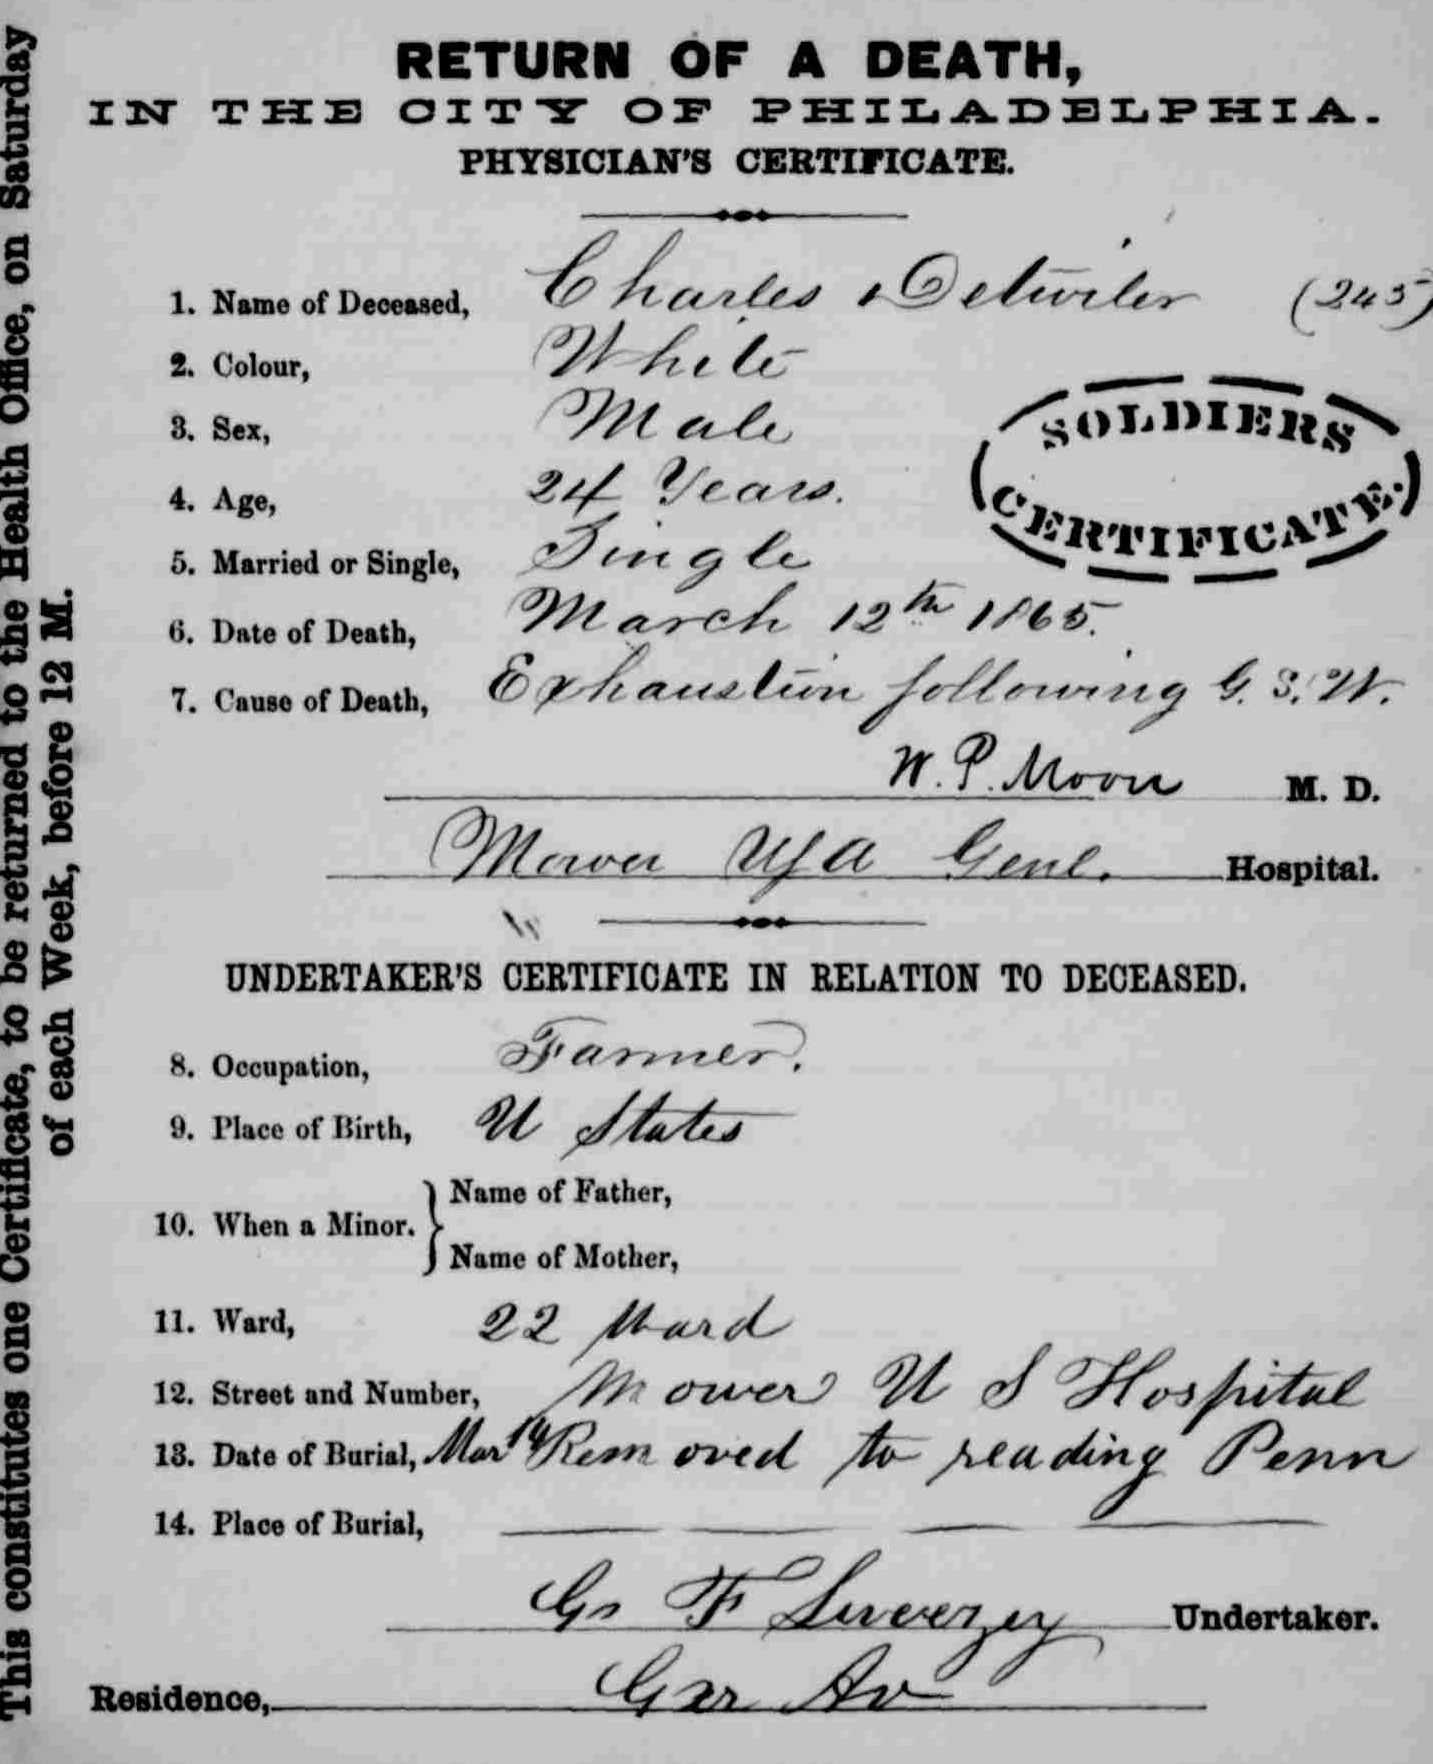 This constitutes one Certificate, to be returned to the Health Office, on Saturday
of each Week, before 12 M.
RETURN OF A DEATH,
IN THE CITY OF PHILADELPHIA.
PHYSICIAN'S CERTIFICATE.
1. Name of Deceased, Charles Detwiler (245)
2. Colour, White
SOLDIERS
CERTIFICATE.
3. Sex, Male
4. Age, 24 Years.
5. Married or Single, Single
6. Date of Death, March 12th 1865.
7. Cause of Death, Exhaustion following G. S. W.
W. P. Moon M. D.
Mower USA Genl. Hospital.
UNDERTAKER'S CERTIFICATE IN RELATION TO DECEASED.
8. Occupation, Farmer.
9. Place of Birth, U States
10. When a Minor. Name of Father,
Name of Mother,
11. Ward, 22 Ward
12. Street and Number, Mower U S Hospital
13. Date of Burial, Mar 14 Removed to reading Penn
14. Place of Burial,
F Sweezey Undertaker.
Residence, Av